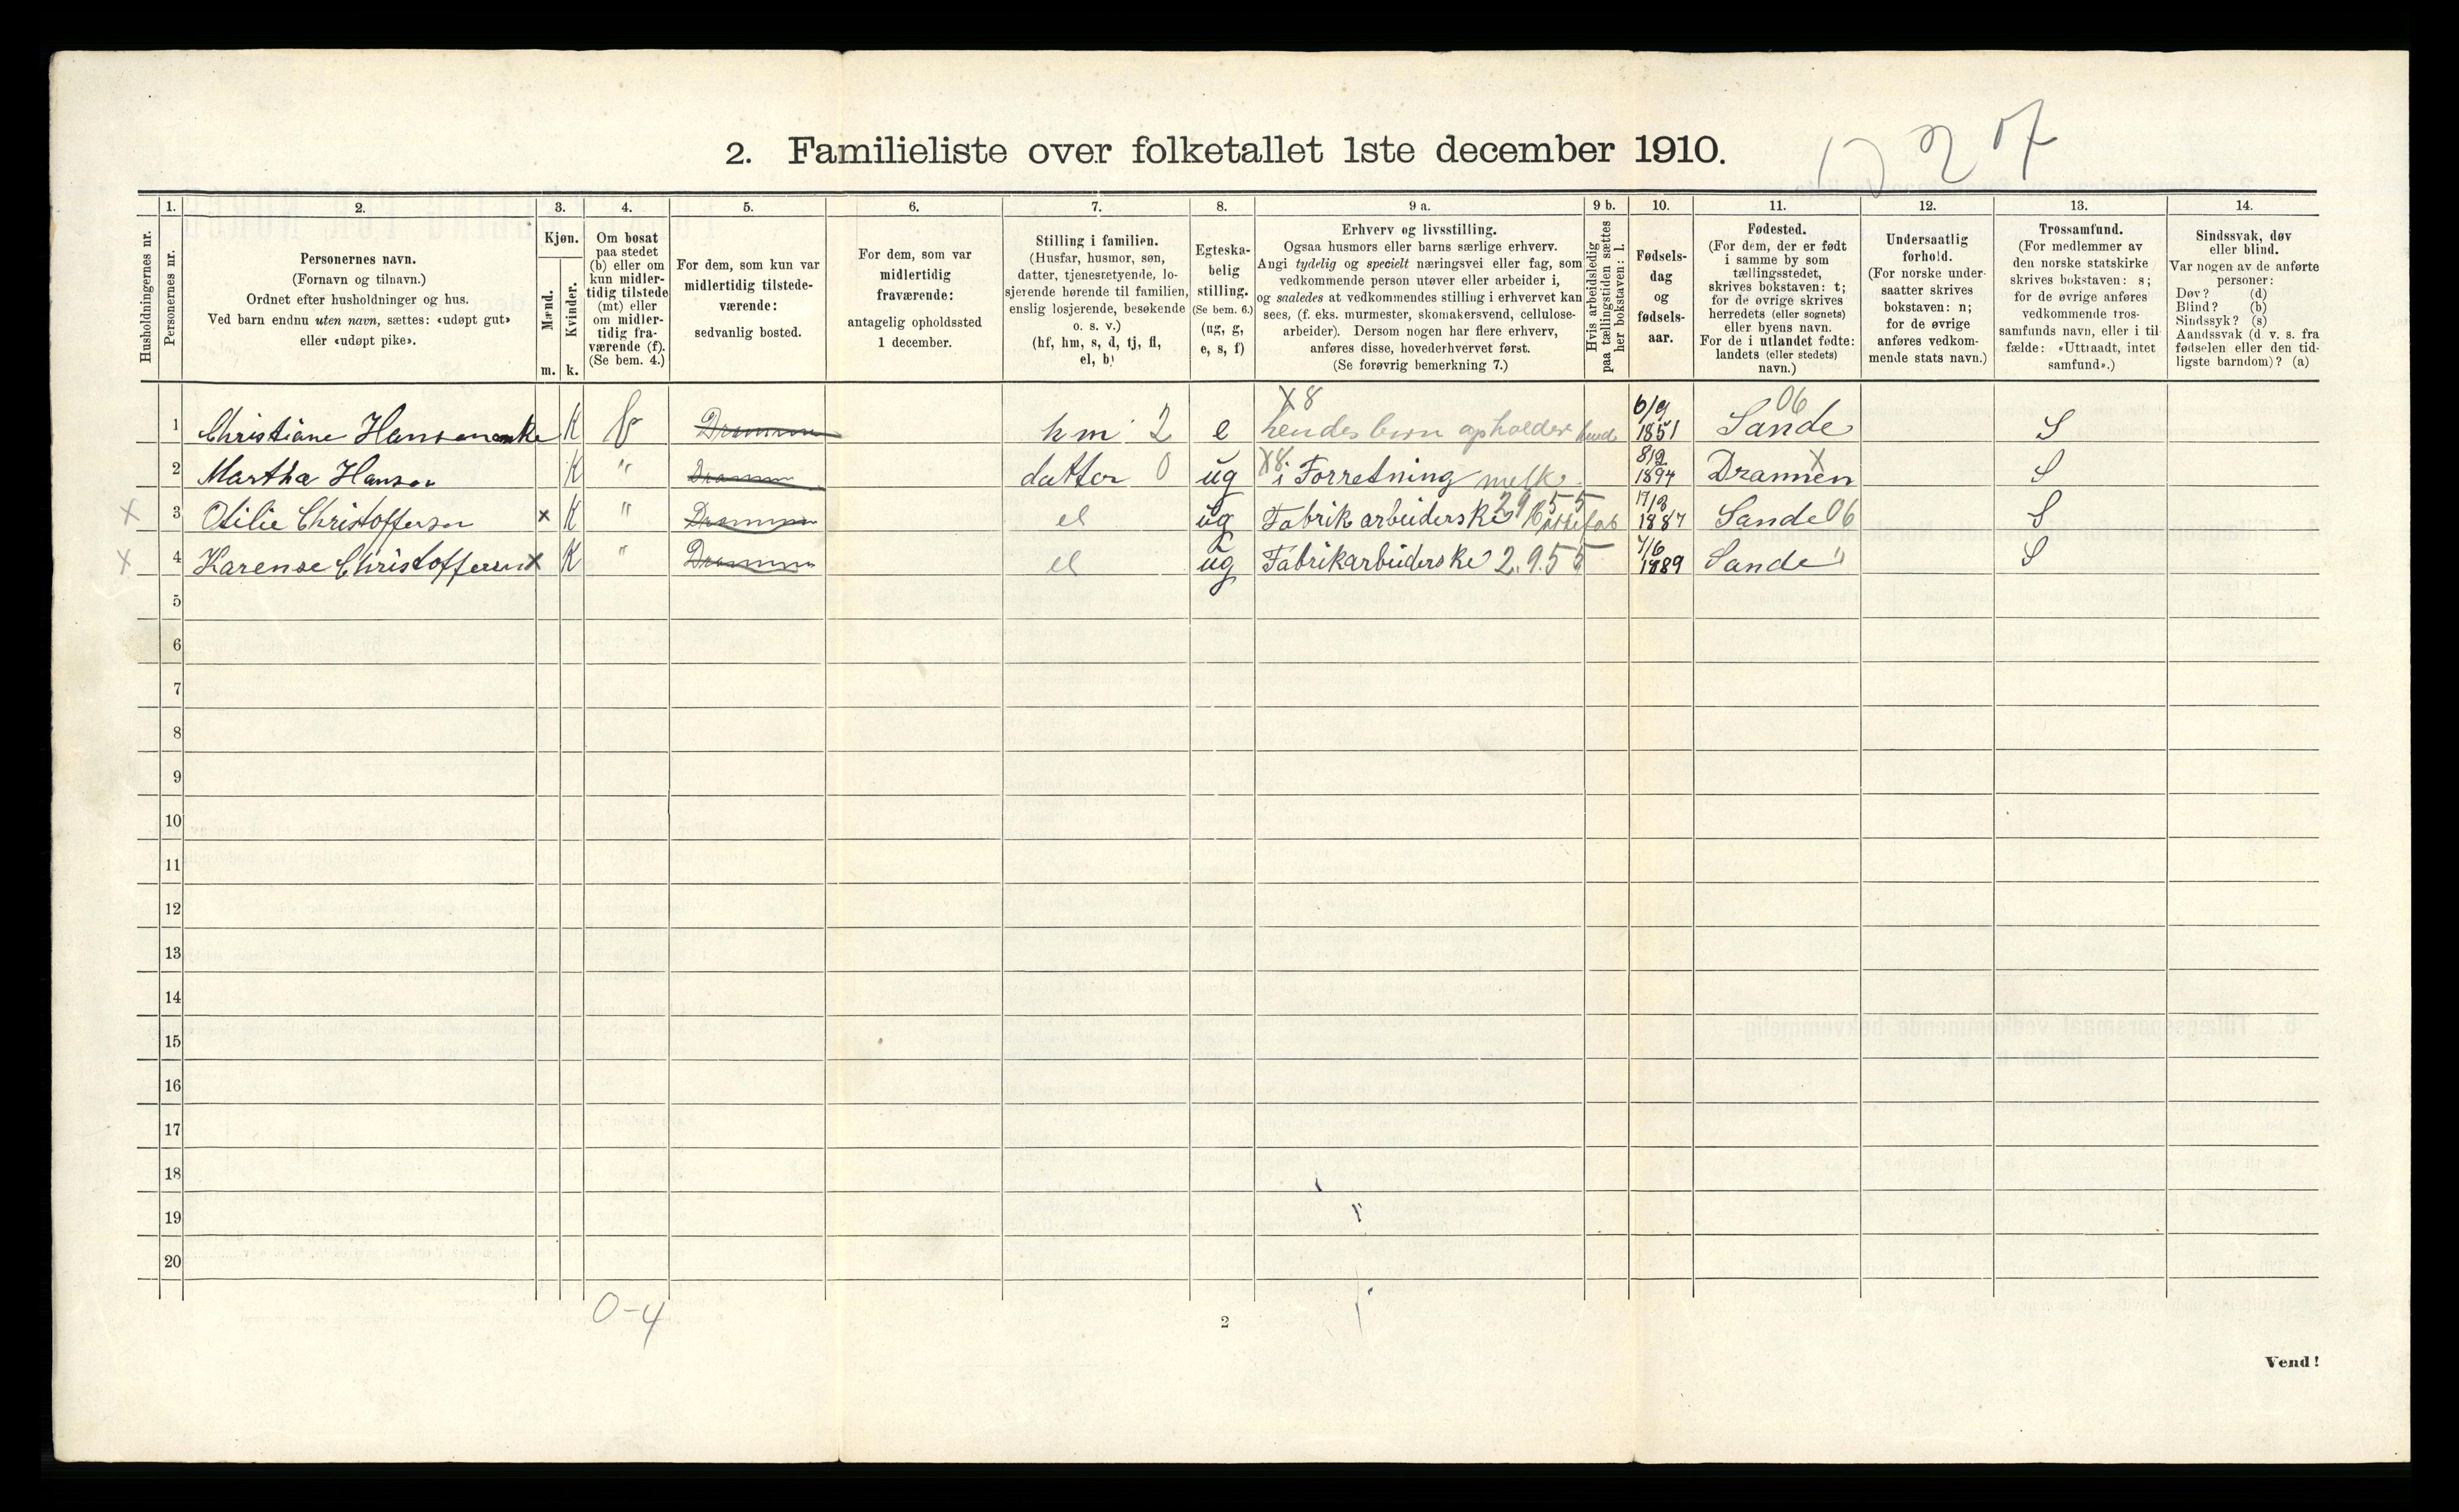 2. Familieliste over folketallet 1ste december 1910.
Husholdningernes nr.
1.
Personernes nr.
2.
Personernes navn.
(Fornavn og tilnavn.)
Ordnet efter husholdninger og hus.
Ved barn endnu uten navn, sættes: «udøpt gut»
eller «udøpt pike».
3.
Kjøn.
Mænd.
Kvinder.
m. k.
4.
Om bosat
paa stedet
(b) eller om
kun midler-
tidig tilstede
(mt) eller
om midler-
tidig fra-
værende (f).
(Se bem. 4.)
5.
For dem, som kun var
midlertidig tilstede-
værende:
sedvanlig bosted.
6.
For dem, som var
midlertidig
fraværende:
antagelig opholdssted
1 december.
7.
Stilling i familien.
(Husfar, husmor, søn,
datter, tjenestetyende, lo-
sjerende hørende til familien,
enslig losjerende, besøkende
o. s. v.)
(hf, hm, s, d, tj, fl,
el, b)
8.
Egteska-
belig
stilling.
(Se bem. 6.)
(ug, g,
e, s, f)
9 a.
Erhverv og livsstilling.
Ogsaa husmors eller barns særlige erhverv.
Angi tydelig og specielt næringsvei eller fag, som
vedkommende person utøver eller arbeider i,
og saaledes at vedkommendes stilling i erhvervet kan
sees, (f. eks. murmester, skomakersvend, cellulose-
arbeider). Dersom nogen har flere erhverv,
anføres disse, hovederhvervet først.
(Se forøvrig bemerkning 7.)
9 b.
Hvis arbeidsledig
paa tællingstiden sættes
her bokstaven: l.
10.
Fødsels-
dag
og
fødsels-
aar.
11.
Fødested.
(For dem, der er født
i samme by som
tællingsstedet,
skrives bokstaven: t;
for de øvrige skrives
herredets (eller sognets)
eller byens navn.
For de i utlandet fødte:
landets (eller stedets)
navn.)
12.
Undersaatlig
forhold.
(For norske under-
saatter skrives
bokstaven: n;
for de øvrige
anføres vedkom-
mende stats navn.)
13.
Trossamfund.
(For medlemmer av
den norske statskirke
skrives bokstaven: s;
for de øvrige anføres
vedkommende tros-
samfunds navn, eller i til-
fælde: «Uttraadt, intet
samfund».)
14.
Sindssvak, døv
eller blind.
Var nogen av de anførte
personer:
Døv? (d)
Blind? (b)
Sindssyk? (s)
Aandssvak (d. v. s. fra
fødselen eller den tid-
ligste barndom)? (a)
1 Christiane Hansen enke K b Drammen hm 2 e X8 hendes børn opholder hende 6/9 1851 Sande 06 S
2 Martha Hansen K " Drammen datter 0 ug X8 i Forretning melk 1894 Drammen X S
X 3 Otilie Christoffersen x K " Drammen el ug Fabrikarbeiderske 2955 1887 Sande 06 S
X 4 Karense Christoffersen x K " Drammen el ug Fabrikarbeiderske 2.9.55 7/6 1889 Sande " S
5
6
7
8
9
10
11
12
13
14
15
16
17
18
19
20
0-4
2
Vend!